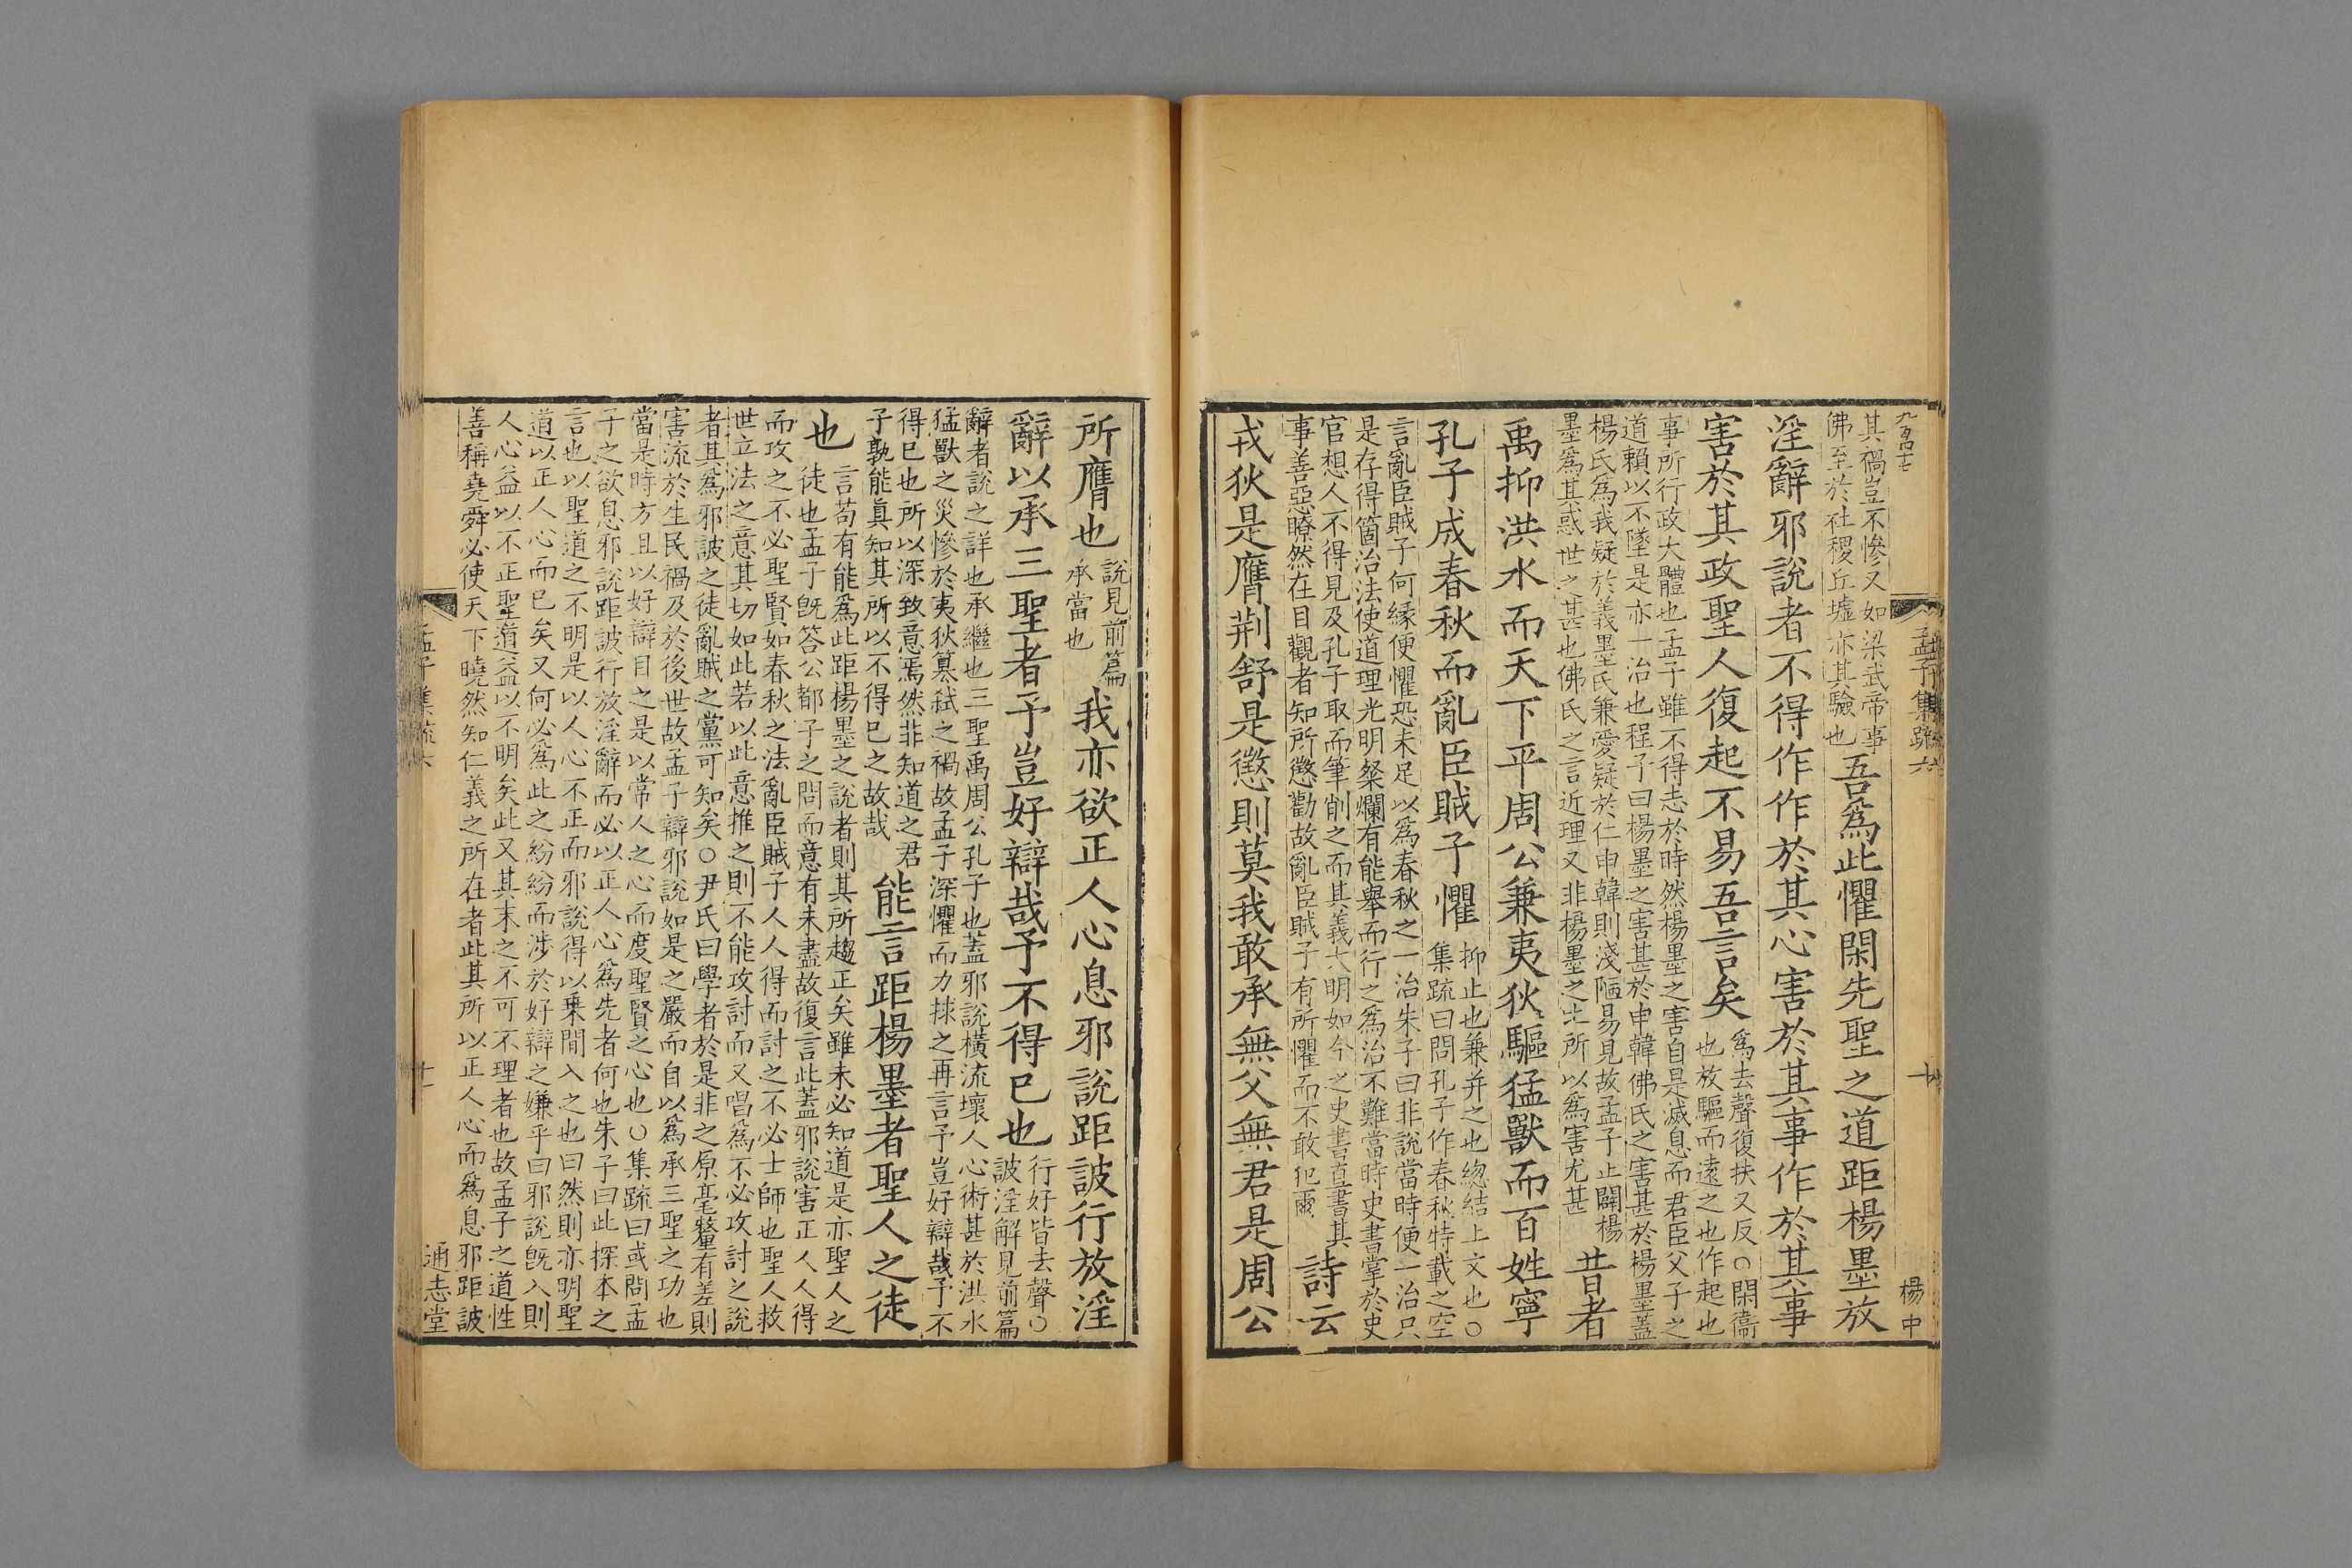 九百四十七
孟子集疏六
十
楊中
其禍豈不慘又如梁武帝事
佛至於社稷丘墟亦其驗也
吾爲此懼閑先聖之道距楊墨放
淫辭邪說者不得作作於其心害於其事作於其事
害於其政聖人復起不易吾言矣
爲去聲復扶又反○閑衞
也放驅而遠之也作起也
事所行政大體也孟子雖不得志於時然楊墨之害自是滅息而君臣父子之
道賴以不墜是亦一治也程子曰楊墨之害甚於申韓佛氏之害甚於楊墨蓋
楊氏爲我疑於義墨氏兼愛疑於仁申韓則淺陋易見故孟子止闢楊
墨爲其惑世之甚也佛氏之言近理又非楊墨之比所以爲害尤甚
昔者
禹抑洪水而天下平周公兼夷狄驅猛獸而百姓寧
孔子成春秋而亂臣賊子懼
抑止也兼并之也緫結上文也○
集疏曰問孔子作春秋特載之空
言亂臣賊子何緣便懼恐未足以爲春秋之一治朱子曰非說當時便一治只
是存得箇治法使道理光明粲爛有能舉而行之爲治不難當時史書掌於史
官想人不得見及孔子取而筆削之而其義大明如今之史書直書其
事善惡瞭然在目觀者知所懲勸故亂臣賊子有所懼而不敢犯爾
詩云
戎狄是膺荆舒是懲則莫我敢承無父無君是周公
所膺也
說見前篇
承當也
我亦欲正人心息邪說距詖行放淫
辭以承三聖者予豈好辯哉予不得已也
行好皆去聲○
詖淫解見前篇
辭者說之詳也承繼也三聖禹周公孔子也蓋邪說橫流壞人心術甚於洪水
猛獸之災慘於夷狄簒弑之禍故孟子深懼而力捄之再言予豈好辯哉予不
得已也所以深致意焉然非知道之君
子孰能眞知其所以不得已之故哉
能言距楊墨者聖人之徒
也
言苟有能爲此距楊墨之說者則其所趨正矣雖未必知道是亦聖人之
徒也孟子旣答公都子之問而意有未盡故復言此蓋邪說害正人人得
而攻之不必聖賢如春秋之法亂臣賊子人人得而討之不必士師也聖人救
世立法之意其切如此若以此意推之則不能攻討而又唱爲不必攻討之說
者其爲邪詖之徒亂賊之黨可知矣○尹氏曰學者於是非之原毫釐有差則
害流於生民禍及於後世故孟子辯邪說如是之嚴而自以爲承三聖之功也
當是時方且以好辯目之是以常人之心而度聖賢之心也○集疏曰或問孟
子之欲息邪說距詖行放淫辭而必以正人心爲先者何也朱子曰此探本之
言也以聖道之不明是以人心不正而邪說得以乗閒入之也曰然則亦明聖
道以正人心而已矣又何必爲此之紛紛而涉於好辯之嫌乎曰邪說旣入則
人心益以不正聖道益以不明矣此又其末之不可不理者也故孟子之道性
善稱堯舜必使天下曉然知仁義之所在者此其所以正人心而爲息邪距詖
孟子集疏六
十
通志堂